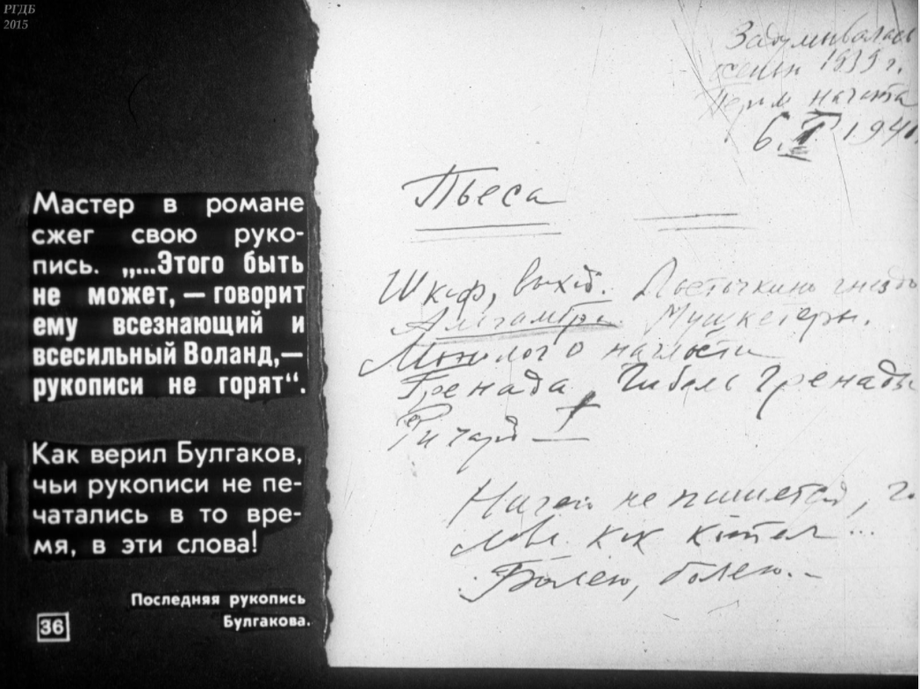 РГДБ
2015
Мастер в романе
сжег свою руко-
пись. „...Этого быть
не может, — говорит
ему всезнающий и
всесильный Воланд,—
рукописи не горят“.
Как верил Булгаков,
чьи рукописи не пе-
чатались в то вре-
мя, в эти слова!
Последняя рукопись
Булгакова.
36
Задумывалась
осенью 1939 г.
Пером начата
6.I.1940
Пьеса
Шкаф, выход. Ласточкино гнездо
Альгамбра. Мушкетеры.
Монолог о наглости
Гренада Гибель Гренады
Ричард I
Ничего не пишется, г
лова как котел...
Болею, болею..